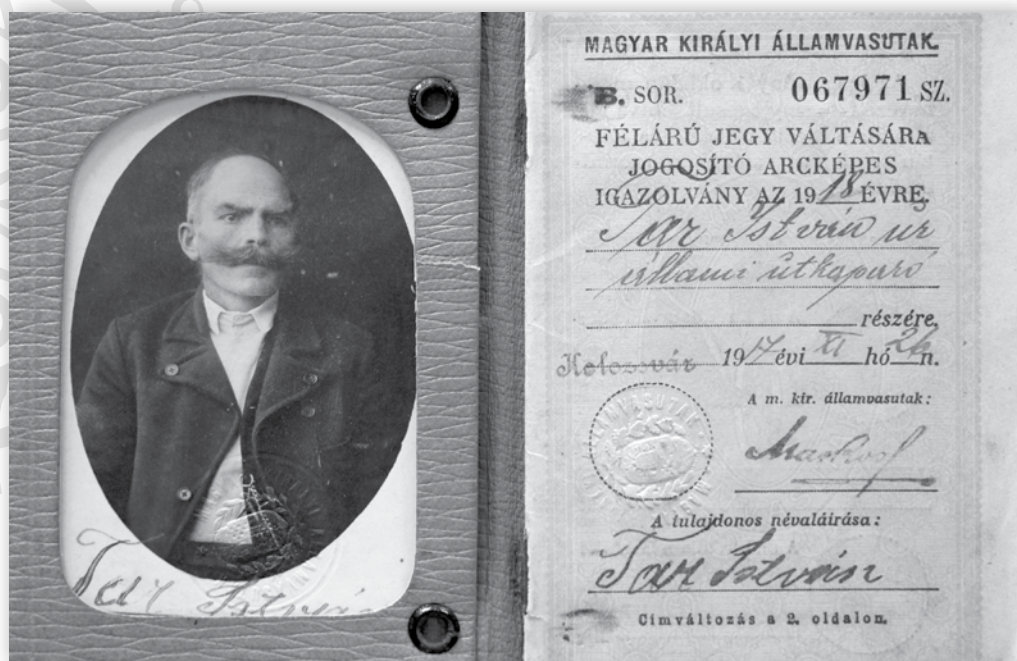 Tar István
MAGYAR KIRÁLYI ÁLLAMVASUTAK.
B. SOR. 067971 SZ.
FÉLÁRÚ JEGY VÁLTÁSÁRA
JOGOSÍTÓ ARCKÉPES
IGAZOLVÁNY AZ 1918 ÉVRE.
Tar István ur
állami útkaparó
részére.
Kolozsvár 1917 évi XI hó 26 n.
A m. kir. államvasutak:
A tulajdonos névaláírása:
Tar István
Címváltozás a 2. oldalon.